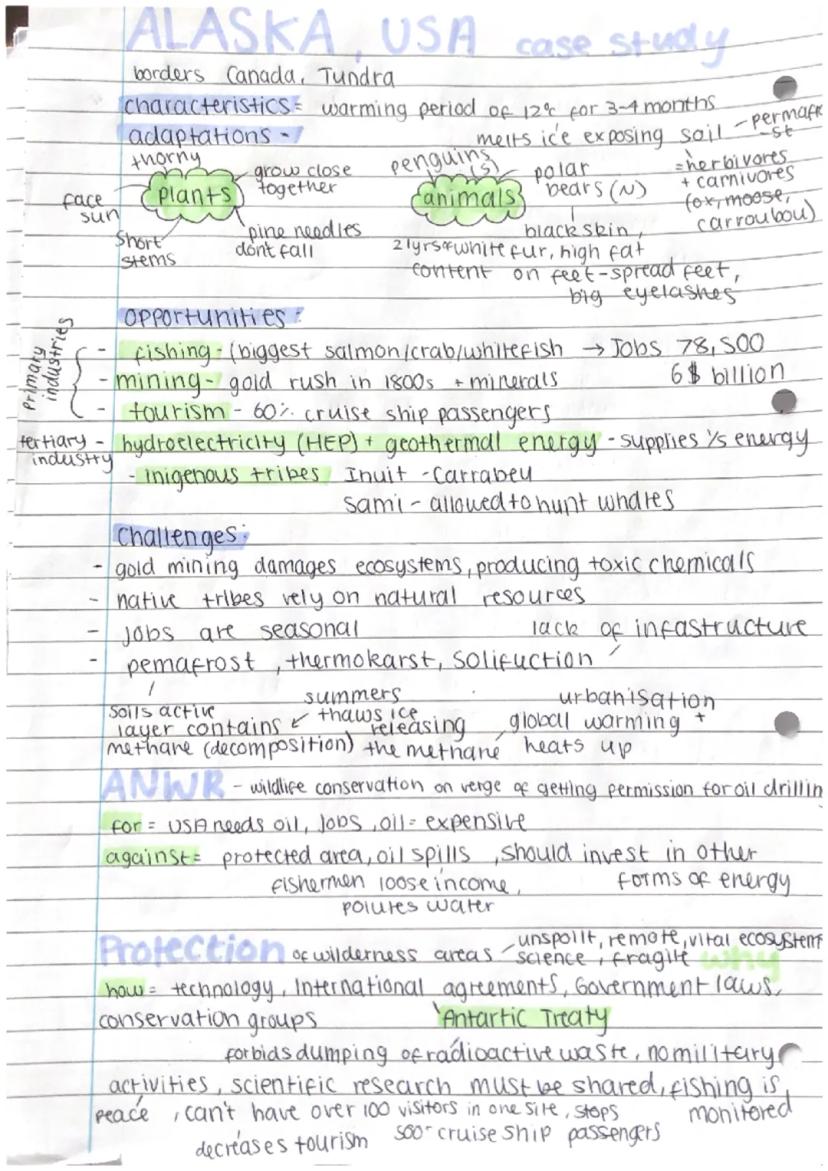 ALASKA, USA case study
borders Canada, Tundra
characteristics = warming period of 12°c for 3-4 months
adaptations - melts ice exposing soil - permafr
st
thorny
plants
grow close
together
face
sun
short
stems
pine needles
dont fall
penguins
(S)
animals
polar
bears (N)
= herbivores
+ carnivores
(ox, moose,
carroubou)
black skin,
21yrs white fur, high fat
content on feet-spread feet,
big eyelashes
opportunities:
Primary
industries
- fishing - (biggest salmon/crab/whitefish → Jobs 78,500
- mining - gold rush in 1800s + minerals 6$ billion
- tourism - 60% cruise ship passengers
tertiary - hydroelectricity (HEP) + geothermal energy - supplies 1/5 energy
industry
- inigenous tribes Inuit - Carrabeu
Sami - allowed to hunt whales
Challenges:
- gold mining damages ecosystems, producing toxic chemicals
- native tribes rely on natural resources
- jobs are seasonal lack of infastructure
- pemafrost, thermokarst, solifuction
soils active
layer contains
methane (decomposition)
summers
thaws ice
releasing
the methane
urbanisation
global warming +
heats up
ANWR - wildlife conservation on verge of getting permission for oil drillin
for = USA needs oil, jobs, oil = expensive
against = protected area, oil spills, should invest in other
fishermen loose income, forms of energy
polutes water
Protection of wilderness areas - unspoilt, remote, vital ecosystem
science, fragile why
how = technology, International agreements, Government laws,
conservation groups Antartic Treaty
forbids dumping of radioactive waste, no military
activities, scientific research must be shared, fishing is
peace, can't have over 100 visitors in one site, stops monitored
decreases tourism 500+ cruise ship passengers